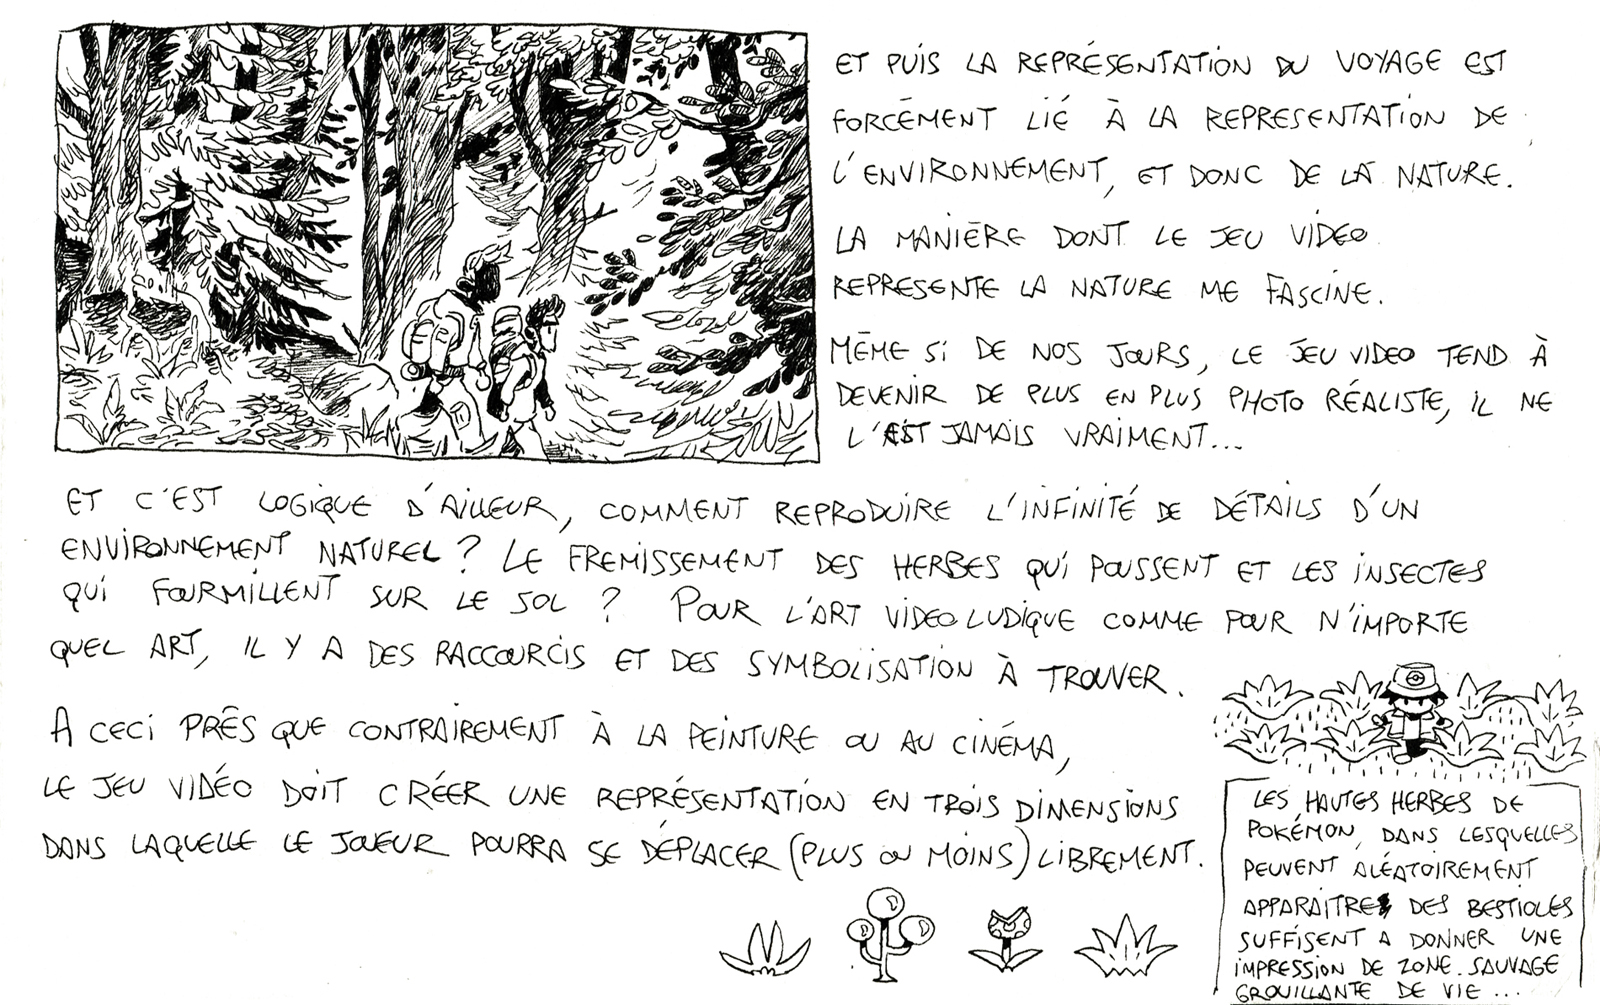 ET PUIS LA REPRÉSENTATION DU VOYAGE EST
FORCÉMENT LIÉ À LA REPRESENTATION DE
L'ENVIRONNEMENT, ET DONC DE LA NATURE.
LA MANIÈRE DONT LE JEU VIDEO
REPRESENTE LA NATURE ME FASCINE.
MÊME SI DE NOS JOURS, LE JEU VIDEO TEND À
DEVENIR DE PLUS EN PLUS PHOTO RÉALISTE, IL NE
L'EST JAMAIS VRAIMENT...
ET C'EST LOGIQUE D'AILLEUR, COMMENT REPRODUIRE L'INFINITÉ DE DÉTAILS D'UN
ENVIRONNEMENT NATUREL ? LE FREMISSEMENT DES HERBES QUI POUSSENT ET LES INSECTES
QUI FOURMILLENT SUR LE SOL ? POUR L'ART VIDEOLUDIQUE COMME POUR N'IMPORTE
QUEL ART, IL Y A DES RACCOURCIS ET DES SYMBOLISATION À TROUVER.
A CECI PRÊS QUE CONTRAIREMENT À LA PEINTURE OU AU CINÉMA,
LE JEU VIDÉO DOIT CRÉER UNE REPRÉSENTATION EN TROIS DIMENSIONS
DANS LAQUELLE LE JOUEUR POURRA SE DÉPLACER (PLUS OU MOINS) LIBREMENT.
LES HAUTES HERBES DE
POKÉMON, DANS LESQUELLES
PEUVENT ALÉATOIREMENT
APPARAITRE DES BESTIOLES
SUFFISENT A DONNER UNE
IMPRESSION DE ZONE SAUVAGE
GROUILLANTE DE VIE...